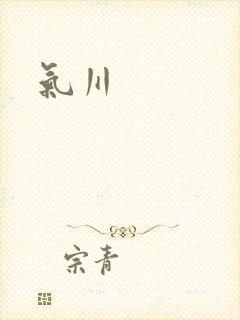 氣川
宗青